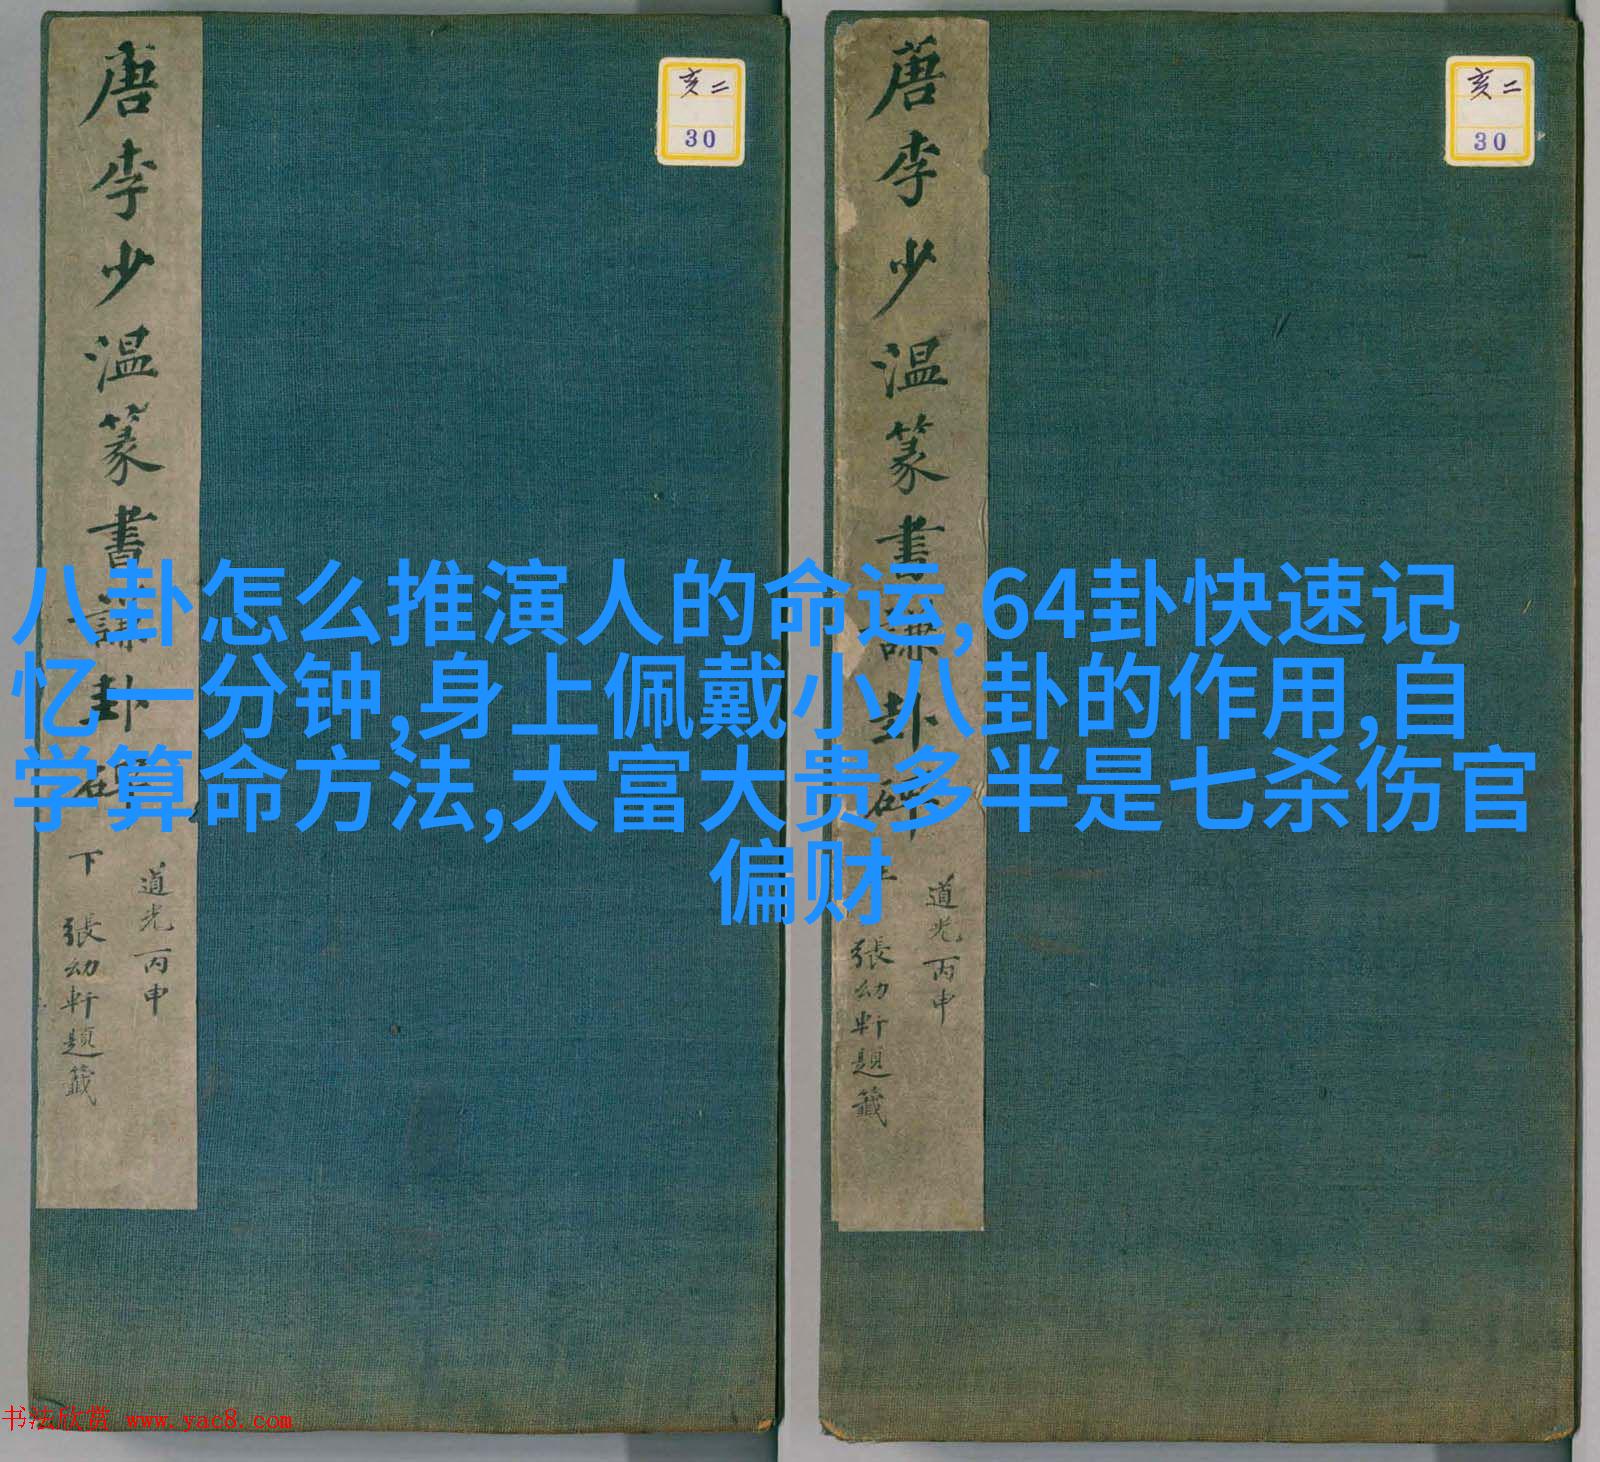 唐李少温篆書謙卦碑
下
道光丙申
張幼軒題籤
亥二
30
唐李少温篆書謙卦碑
上
道光丙申
張幼軒題籤
亥二
30
八卦怎么推演人的命运,64卦快速记
忆一分钟,身上佩戴小八卦的作用,自
学算命方法,大富大贵多半是七杀伤官
偏财
书法欣赏 www.yac8.com